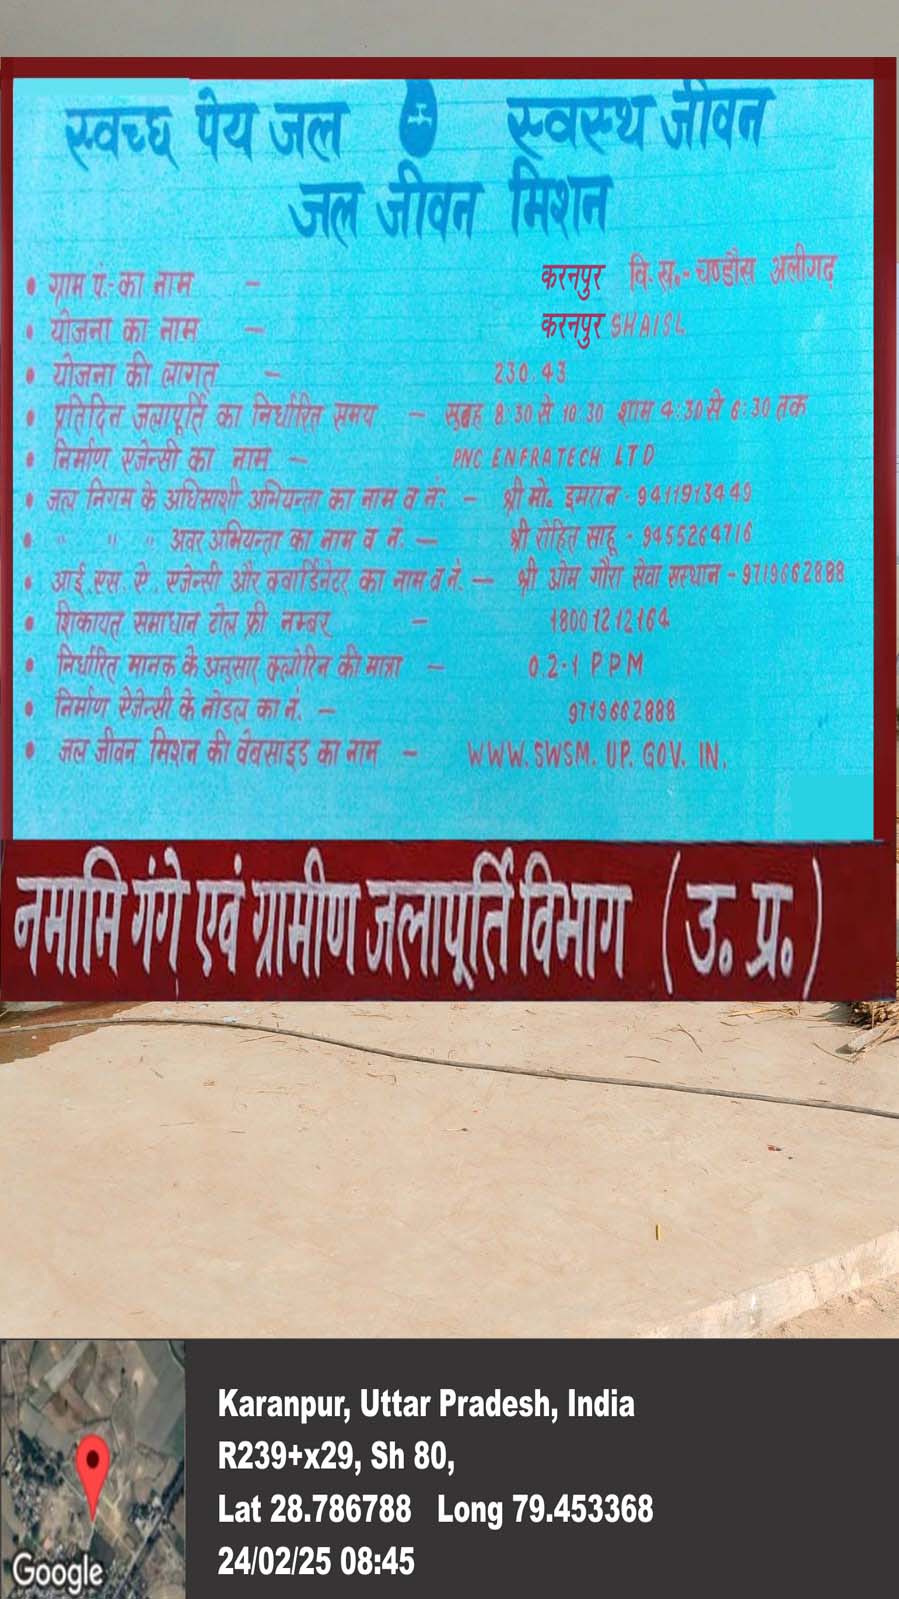 स्वच्छ पेय जल स्वस्थ जीवन
जल जीवन मिशन
• ग्राम पं.-का नाम - करनपुर वि.ख.- चण्डौस अलीगढ़
• योजना का नाम - करनपुर SHAISL
• योजना की लागत - 230.43
• प्रतिदिन जलापूर्ति का निर्धारित समय - सुबह 8:30 से 10:30 शाम 4:30 से 6:30 तक
• निर्माण एजेन्सी का नाम - PNC ENFRATECH LTD
• जल निगम के अधिसाशी अभियन्ता का नाम व नं. - श्री मो. इमरान - 9411913449
• " " " अवर अभियन्ता का नाम व नं. - श्री रोहित साहू - 9455264716
• आई.एस.ऐ. एजेन्सी और क्वार्डिनेटर का नाम व नं. - श्री ओम गौरा सेवा सस्थान - 9719662888
• शिकायत समाधान टोल फ्री नम्बर - 18001212164
• निर्धारित मानक के अनुसार क्लोरिन की मात्रा - 0.2-1 PPM
• निर्माण ऐजेन्सी के नोडल का नं. - 9719662888
• जल जीवन मिशन की वेबसाइड का नाम - WWW.SWSM.UP.GOV.IN.
नमामि गंगे एवं ग्रामीण जलापूर्ति विभाग (उ.प्र.)
Karanpur, Uttar Pradesh, India
R239+x29, Sh 80,
Lat 28.786788 Long 79.453368
24/02/25 08:45
Google